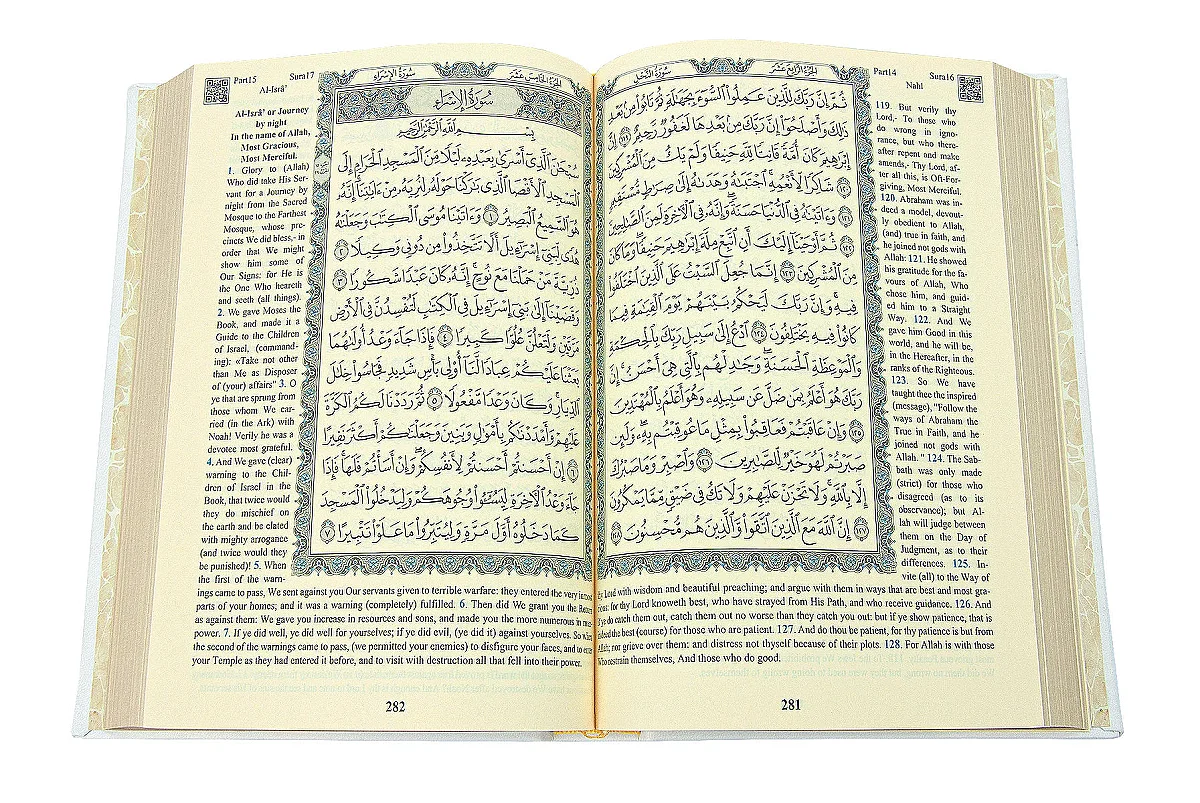 الجزء الرابع عشر
سورة النحل
ثُمَّ إِنَّ رَبَّكَ لِلَّذِينَ عَمِلُوا السُّوءَ بِجَهَالَةٍ ثُمَّ تَابُوا مِنْ بَعْدِ
ذَلِكَ وَأَصْلَحُوا إِنَّ رَبَّكَ مِنْ بَعْدِهَا لَغَفُورٌ رَحِيمٌ ١١٩ إِنَّ
إِبْرَاهِيمَ كَانَ أُمَّةً قَانِتًا لِلَّهِ حَنِيفًا وَلَمْ يَكُ مِنَ الْمُشْرِكِينَ
١٢٠ شَاكِرًا لِأَنْعُمِهِ اجْتَبَاهُ وَهَدَاهُ إِلَى صِرَاطٍ مُسْتَقِيمٍ
١٢١ وَآتَيْنَاهُ فِي الدُّنْيَا حَسَنَةً وَإِنَّهُ فِي الْآخِرَةِ لَمِنَ الصَّالِحِينَ
١٢٢ ثُمَّ أَوْحَيْنَا إِلَيْكَ أَنِ اتَّبِعْ مِلَّةَ إِبْرَاهِيمَ حَنِيفًا وَمَا كَانَ
مِنَ الْمُشْرِكِينَ ١٢٣ إِنَّمَا جُعِلَ السَّبْتُ عَلَى الَّذِينَ اخْتَلَفُوا
فِيهِ وَإِنَّ رَبَّكَ لَيَحْكُمُ بَيْنَهُمْ يَوْمَ الْقِيَامَةِ فِيمَا
كَانُوا فِيهِ يَخْتَلِفُونَ ١٢٤ ادْعُ إِلَى سَبِيلِ رَبِّكَ بِالْحِكْمَةِ
وَالْمَوْعِظَةِ الْحَسَنَةِ وَجَادِلْهُمْ بِالَّتِي هِيَ أَحْسَنُ إِنَّ
رَبَّكَ هُوَ أَعْلَمُ بِمَنْ ضَلَّ عَنْ سَبِيلِهِ وَهُوَ أَعْلَمُ بِالْمُهْتَدِينَ
١٢٥ وَإِنْ عَاقَبْتُمْ فَعَاقِبُوا بِمِثْلِ مَا عُوقِبْتُمْ بِهِ وَلَئِنْ
صَبَرْتُمْ لَهُوَ خَيْرٌ لِلصَّابِرِينَ ١٢٦ وَاصْبِرْ وَمَا صَبْرُكَ
إِلَّا بِاللَّهِ وَلَا تَحْزَنْ عَلَيْهِمْ وَلَا تَكُ فِي ضَيْقٍ مِمَّا يَمْكُرُونَ
١٢٧ إِنَّ اللَّهَ مَعَ الَّذِينَ اتَّقَوْا وَالَّذِينَ هُمْ مُحْسِنُونَ ١٢٨
Part14 Sura16
Nahl
119. But verily thy
Lord,- To those who
do wrong in igno-
rance, but who there-
after repent and make
amends,- Thy Lord, af-
ter all this, is Oft-For-
giving, Most Merciful.
120. Abraham was in-
deed a model, devout-
ly obedient to Allah,
(and) true in faith, and
he joined not gods with
Allah: 121. He showed
his gratitude for the fa-
vours of Allah, Who
chose him, and guid-
ed him to a Straight
Way. 122. And We
gave him Good in this
world, and he will be,
in the Hereafter, in the
ranks of the Righteous.
123. So We have
taught thee the inspired
(message), "Follow the
ways of Abraham the
True in Faith, and he
joined not gods with
Allah. " 124. The Sab-
bath was only made
(strict) for those who
disagreed (as to its
observance); but Al-
lah will judge between
them on the Day of
Judgment, as to their
differences. 125. In-
vite (all) to the Way of
thy Lord with wisdom and beautiful preaching; and argue with them in ways that are best and most gra-
cious: for thy Lord knoweth best, who have strayed from His Path, and who receive guidance. 126. And
if ye do catch them out, catch them out no worse than they catch you out: but if ye show patience, that is
indeed the best (course) for those who are patient. 127. And do thou be patient, for thy patience is but from
Allah; nor grieve over them: and distress not thyself because of their plots. 128. For Allah is with those
who restrain themselves, And those who do good.
281
Part15 Sura17
Al-Isrâ’
سورة الإسراء
الجزء الخامس عشر
سُورَةُ الإِسْرَاءِ
بِسْمِ اللَّهِ الرَّحْمَنِ الرَّحِيمِ
سُبْحَانَ الَّذِي أَسْرَى بِعَبْدِهِ لَيْلًا مِنَ الْمَسْجِدِ الْحَرَامِ إِلَى
الْمَسْجِدِ الْأَقْصَا الَّذِي بَارَكْنَا حَوْلَهُ لِنُرِيَهُ مِنْ آيَاتِنَا إِنَّهُ
هُوَ السَّمِيعُ الْبَصِيرُ ١ وَآتَيْنَا مُوسَى الْكِتَابَ وَجَعَلْنَاهُ
هُدًى لِبَنِي إِسْرَائِيلَ أَلَّا تَتَّخِذُوا مِنْ دُونِي وَكِيلًا ٢
ذُرِّيَّةَ مَنْ حَمَلْنَا مَعَ نُوحٍ إِنَّهُ كَانَ عَبْدًا شَكُورًا ٣
وَقَضَيْنَا إِلَى بَنِي إِسْرَائِيلَ فِي الْكِتَابِ لَتُفْسِدُنَّ فِي الْأَرْضِ
مَرَّتَيْنِ وَلَتَعْلُنَّ عُلُوًّا كَبِيرًا ٤ فَإِذَا جَاءَ وَعْدُ أُولَاهُمَا
بَعَثْنَا عَلَيْكُمْ عِبَادًا لَنَا أُولِي بَأْسٍ شَدِيدٍ فَجَاسُوا خِلَالَ
الدِّيَارِ وَكَانَ وَعْدًا مَفْعُولًا ٥ ثُمَّ رَدَدْنَا لَكُمُ الْكَرَّةَ
عَلَيْهِمْ وَأَمْدَدْنَاكُمْ بِأَمْوَالٍ وَبَنِينَ وَجَعَلْنَاكُمْ أَكْثَرَ نَفِيرًا
٦ إِنْ أَحْسَنْتُمْ أَحْسَنْتُمْ لِأَنْفُسِكُمْ وَإِنْ أَسَأْتُمْ فَلَهَا فَإِذَا
جَاءَ وَعْدُ الْآخِرَةِ لِيَسُوءُوا وُجُوهَكُمْ وَلِيَدْخُلُوا الْمَسْجِدَ
كَمَا دَخَلُوهُ أَوَّلَ مَرَّةٍ وَلِيُتَبِّرُوا مَا عَلَوْا تَتْبِيرًا ٧
Al-Isrâ’ or Journey
by night
In the name of Allah,
Most Gracious,
Most Merciful.
1. Glory to (Allah)
Who did take His Ser-
vant for a Journey by
night from the Sacred
Mosque to the Farthest
Mosque, whose pre-
cincts We did bless,- in
order that We might
show him some of
Our Signs: for He is
the One Who heareth
and seeth (all things).
2. We gave Moses the
Book, and made it a
Guide to the Children
of Israel, (command-
ing): «Take not other
than Me as Disposer
of (your) affairs" 3. O
ye that are sprung from
those whom We car-
ried (in the Ark) with
Noah! Verily he was a
devotee most grateful.
4. And We gave (clear)
warning to the Chil-
dren of Israel in the
Book, that twice would
they do mischief on
the earth and be elated
with mighty arrogance
(and twice would they
be punished)! 5. When
the first of the warn-
ings came to pass, We sent against you Our servants given to terrible warfare: they entered the very inmost
parts of your homes; and it was a warning (completely) fulfilled. 6. Then did We grant you the Return
as against them: We gave you increase in resources and sons, and made you the more numerous in man-
power. 7. If ye did well, ye did well for yourselves; if ye did evil, (ye did it) against yourselves. So when
the second of the warnings came to pass, (we permitted your enemies) to disfigure your faces, and to enter
your Temple as they had entered it before, and to visit with destruction all that fell into their power.
282